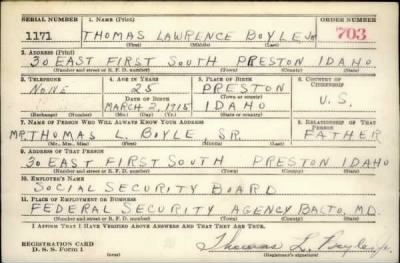 SERIAL NUMBER 1. NAME (Print) ORDER NUMBER
1171 THOMAS LAWRENCE BOYLE JR 703
(First) (Middle) (Last)
2. ADDRESS (Print)
30 EAST FIRST SOUTH PRESTON IDAHO
(Number and street or R. F. D. number) (Town) (County) (State)
3. TELEPHONE 4. AGE IN YEARS 5. PLACE OF BIRTH 6. COUNTRY OF CITIZENSHIP
NONE 25 PRESTON
DATE OF BIRTH (Town or county)
MARCH 2, 1915 IDAHO U.S.
(Exchange) (Number) (Mo.) (Day) (Yr.) (State or country)
7. NAME OF PERSON WHO WILL ALWAYS KNOW YOUR ADDRESS 8. RELATIONSHIP OF THAT PERSON
MR. THOMAS L. BOYLE SR. FATHER
(Mr., Mrs., Miss) (First) (Middle) (Last)
9. ADDRESS OF THAT PERSON
30 EAST FIRST SOUTH PRESTON IDAHO
(Number and street or R. F. D. number) (Town) (County) (State)
10. EMPLOYER'S NAME
SOCIAL SECURITY BOARD
11. PLACE OF EMPLOYMENT OR BUSINESS
FEDERAL SECURITY AGENCY BALTO, MD.
(Number and street or R. F. D. number) (Town) (County) (State)
I AFFIRM THAT I HAVE VERIFIED ABOVE ANSWERS AND THAT THEY ARE TRUE.
REGISTRATION CARD
D. S. S. Form 1 Thomas L. Boyle Jr.
(Registrant's signature)